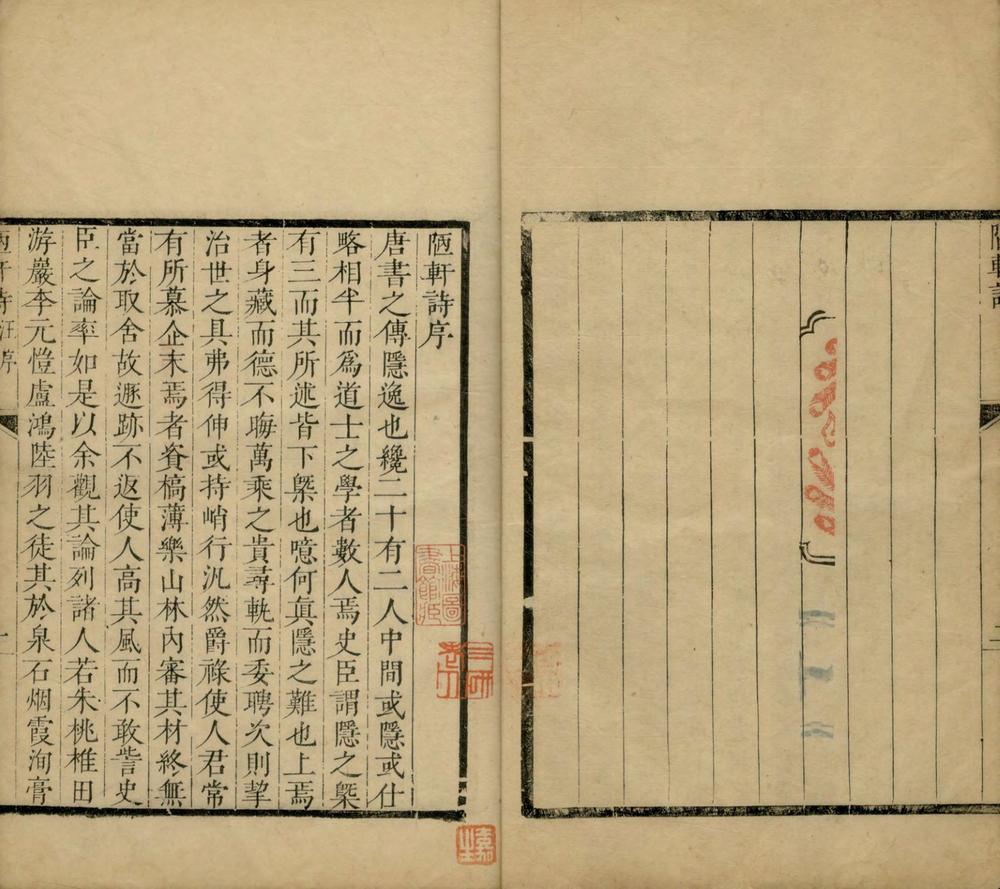 陋軒詩
二
陋軒詩序
唐書之傳隱逸也纔二十有二人中間或隱或仕
略相半而為道士之學者數人焉史臣謂隱之槩
有三而其所述皆下槩也噫何眞隱之難也上焉
者身藏而德不晦萬乘之貴尋軌而委聘次則挈
治世之具弗得伸或持峭行汎然爵祿使人君常
有所慕企末焉者資槁薄樂山林內審其材終無
當於取舍故遯跡不返使人高其風而不敢訾史
臣之論率如是以余觀其論列諸人若朱桃椎田
游巖李元愷盧鴻陸羽之徒其於泉石烟霞洵膏
陋軒詩汪序
一
上海圖書館藏